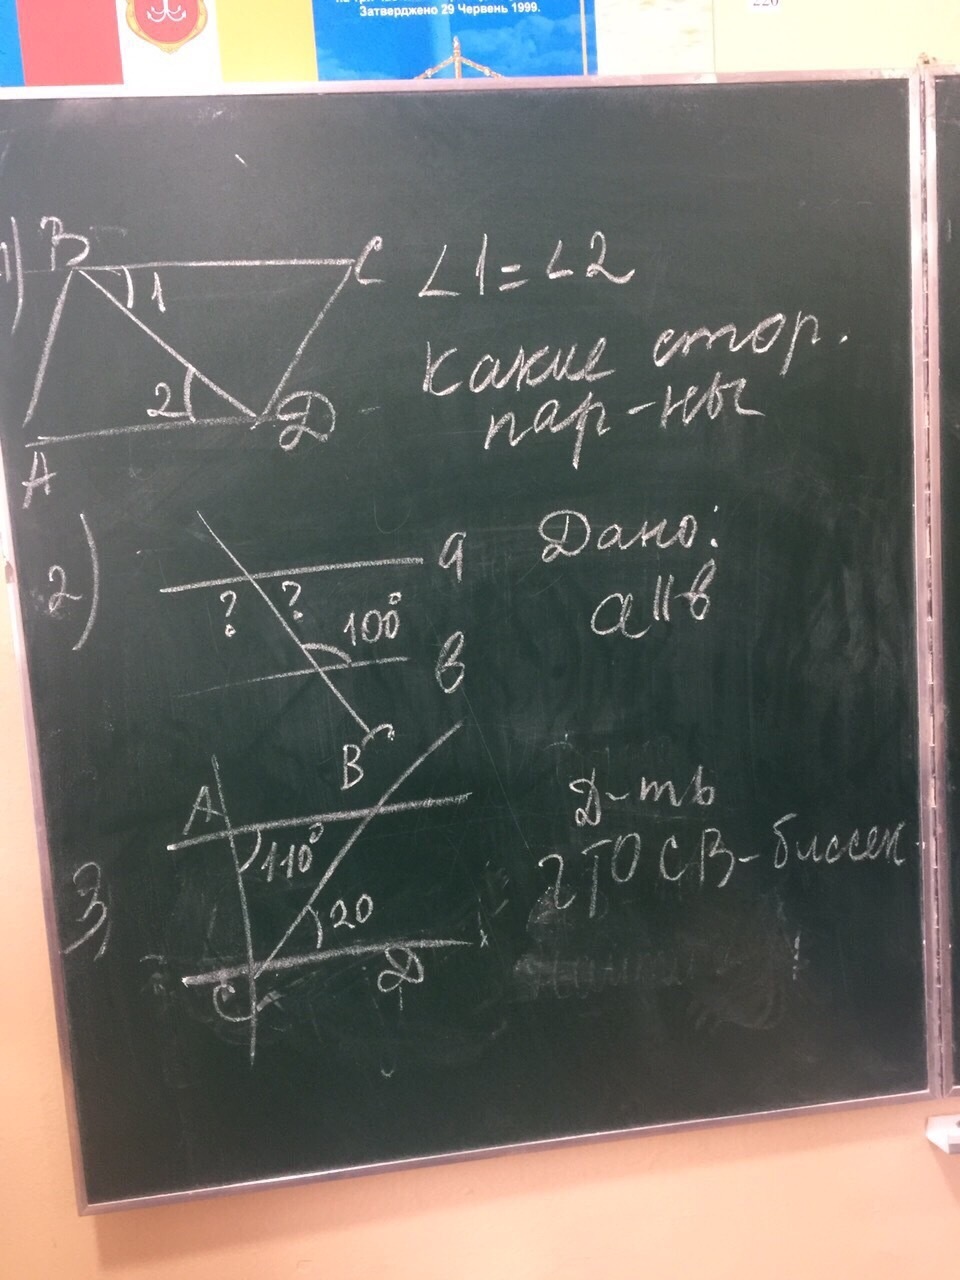 Затверджено 29 Червень 1999.
220
1)
B
C
1
2
A
D
∠1=∠2
Какие стор.
пар-ны
2)
a
? ?
100°
в
Дано:
a||в
3)
B
A
110°
20
C
D
Д-ть
что CB-биссек.